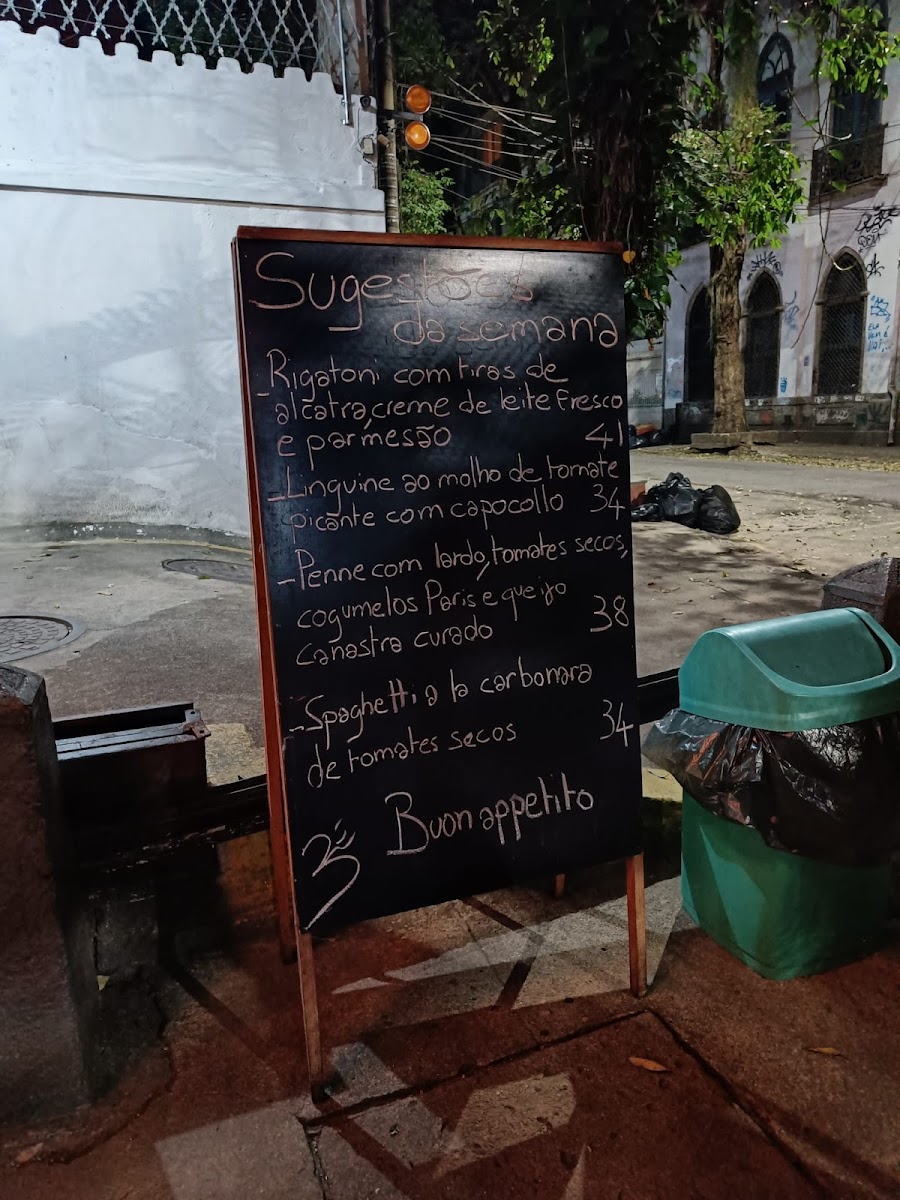 Sugestões
da semana
- Rigatoni com tiras de
alcatra, creme de leite fresco
e parmesão 41
- Linguine ao molho de tomate
picante com capocollo 34
- Penne com lardo, tomates secos,
cogumelos Paris e queijo
canastra curado 38
- Spaghetti a la carbonara
de tomates secos 34
Buon appetito